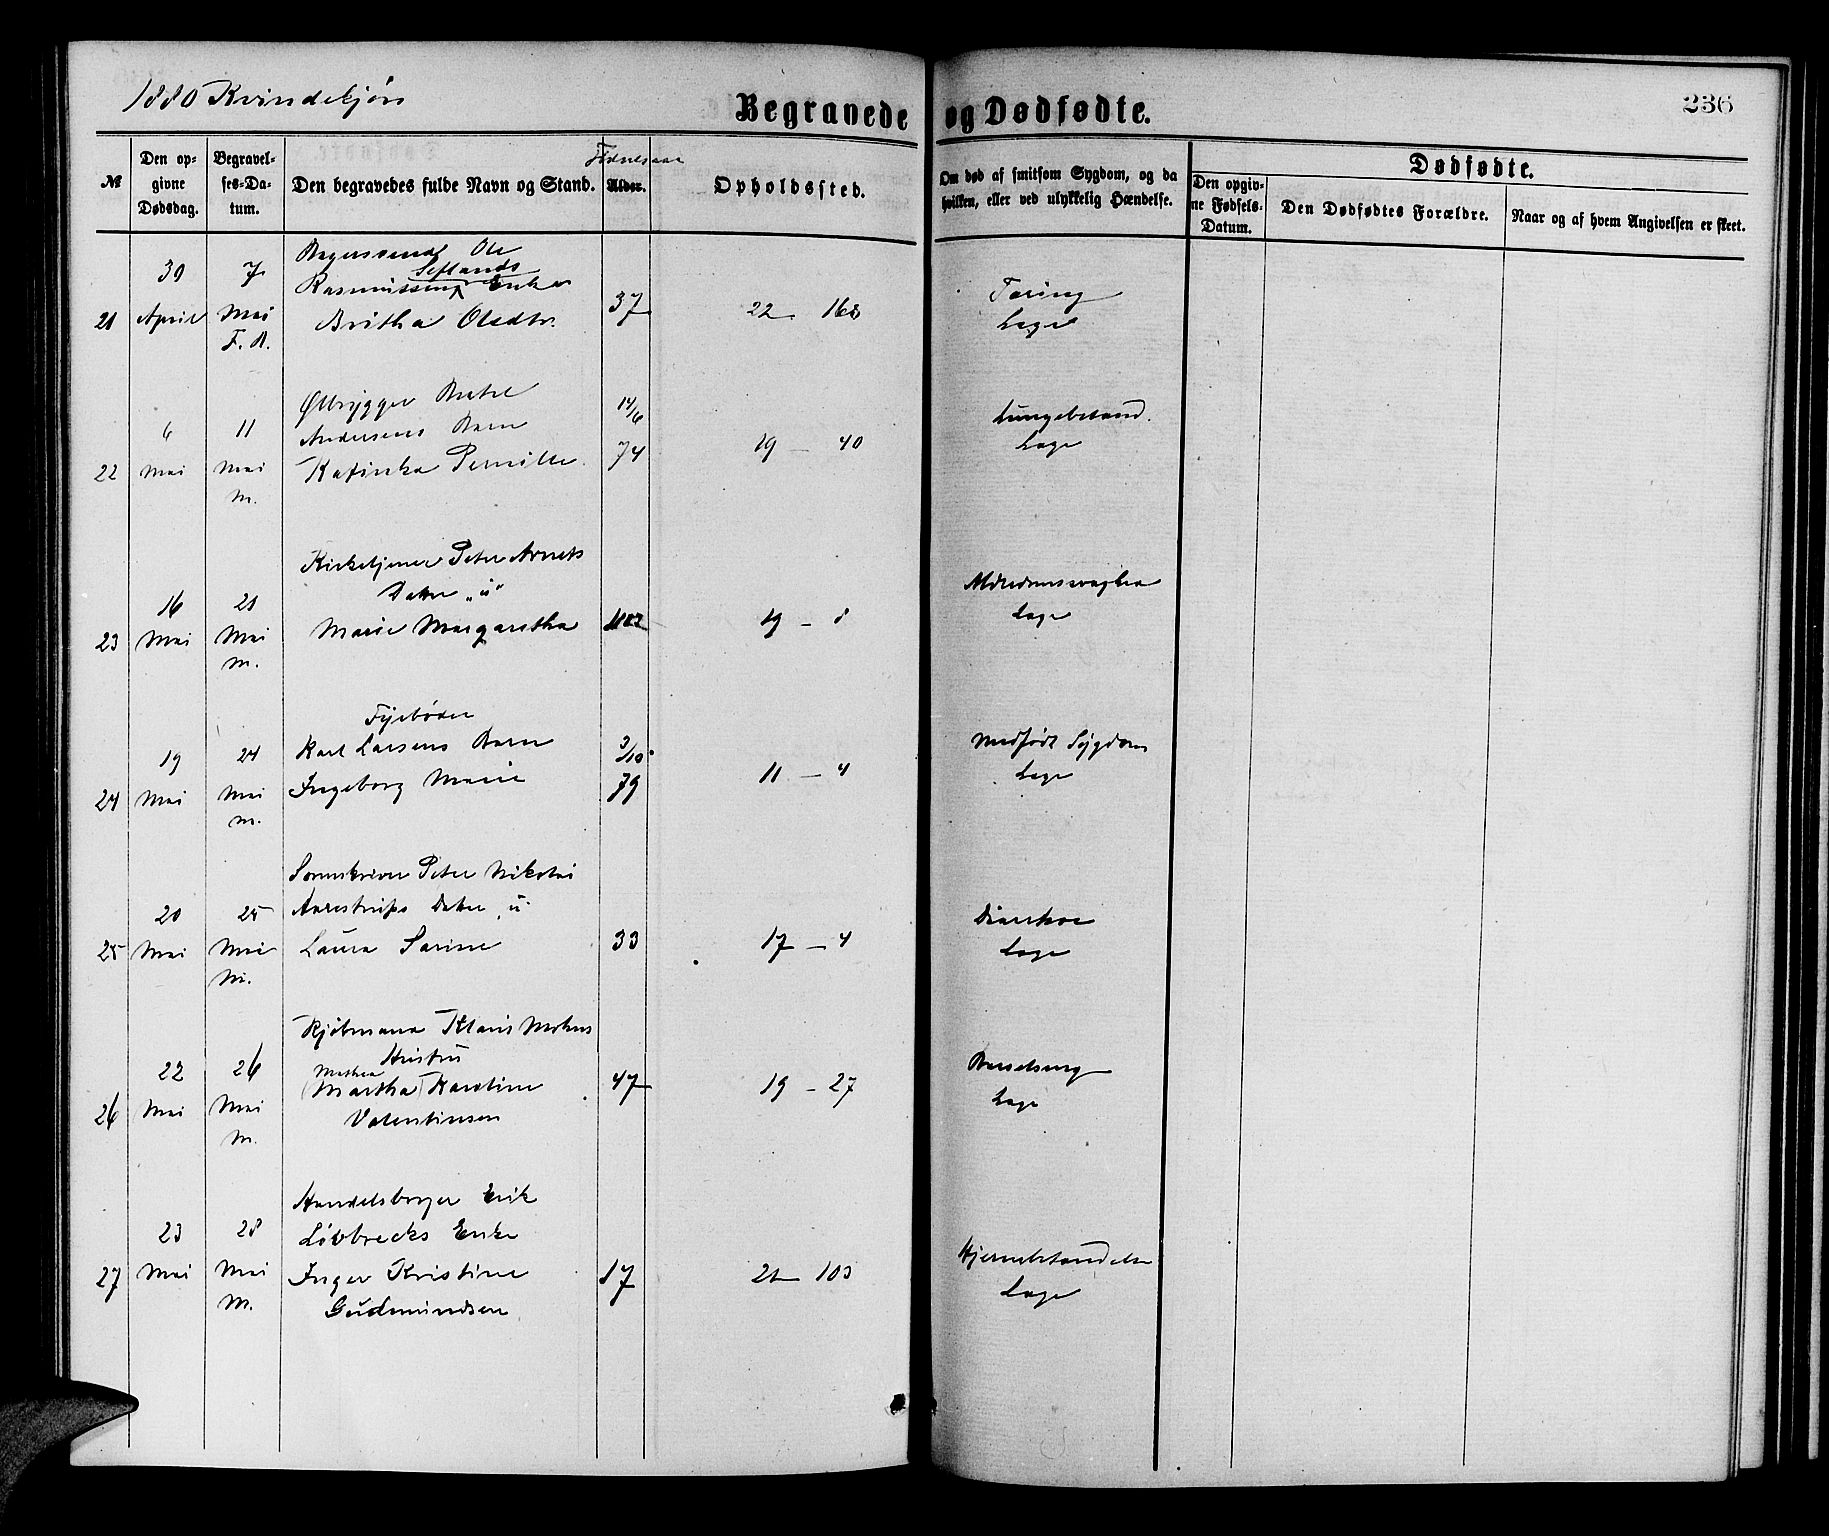 1880 Kvindekjøn
Begravede og Dødfødte.
236
№
Den op-
givne
Dødsdag.
Begravel-
ses-Da-
tum.
Den begravedes fulde Navn og Stand.
Fødselsaar
Alder.
Opholdssted.
Om død af smitsom Sygdom, og da
hvilken, eller ved ulykkelig Hændelse.
Dødfødte.
Den opgiv-
ne Fødsels-
Datum.
Den Dødfødtes Forældre.
Naar og af hvem Angivelsen er skeet.
21
30
April
7
Mai
F. B.
Ole
Seflands
Rasmussens Enke
Britha Olsdtr.
37
22 - 168
Tæring
Læge
22
6
Mai
11
Mai
M.
Ølbrygger Bertel
Andersens Barn
Katinka Pernille
14/6
74
19 - 40
Lungebetænd.
Læge
23
16
Mai
21
Mai
M.
Kirketjener Peter Arnets
Datter "u"
Marie Margaretha
19 - 8
Alderdomssvaghed
Læge
24
19
Mai
24
Mai
M.
Fyrbøder
Karl Larsens Barn
Ingeborg Marie
3/10
79
11 - 4
Medfødt Sygdom
Læge
25
20
Mai
25
Mai
M.
Sorenskriver Peter Nikolai
Aarestrups Datter "u"
Laura Sarine
33
17 - 4
Diarrhoe
Læge
26
22
Mai
26
Mai
M.
Kjøbmand Klaus
Hustru
Mathea
(Martha) Karoline
Valentinsen
47
19 - 27
Barselseng
Læge
27
23
Mai
28
Mai
M.
Handelsborger Erik
Løvbrecks Enke
Inger Kristine
Gudmundsen
17
21 - 103
Hjernebetændelse
Læge